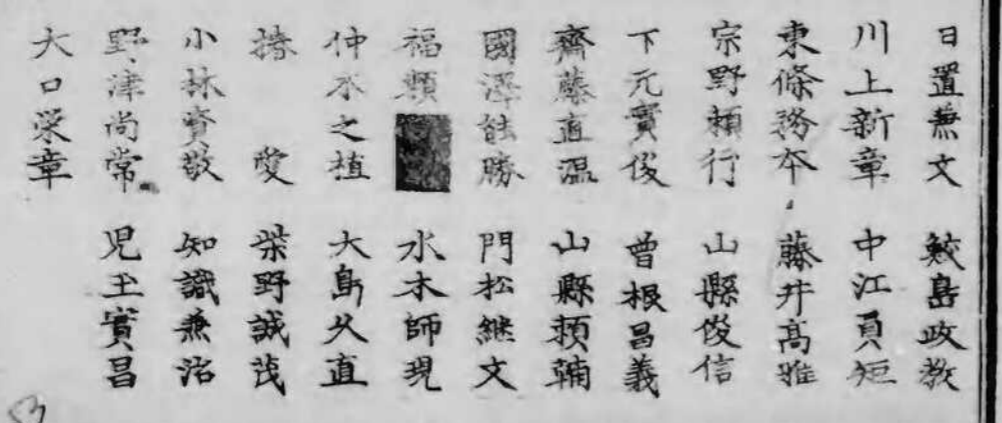 日置兼文 鮫島政敎
川上新章 中江員矩
東條務本 藤井高雅
宗野頼行 山縣俊信
下元實俊 曾根昌義
齋藤直温 山縣頼輔
國澤能勝 門松継文
福類 水木師現
仲木之植 大島久直
愛 柴野誠茂
小林資敬 知識兼治
野津尚常 児玉實昌
大口栄章